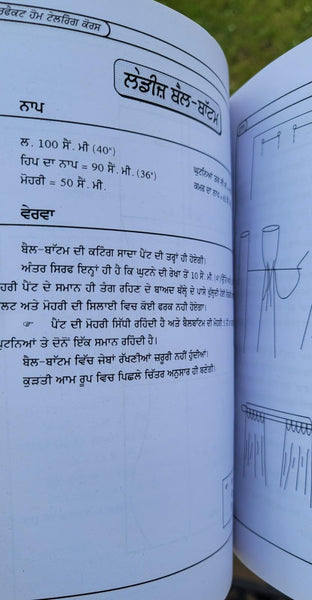 ਰਫੈਕਟ ਹੋਮ ਟੇਲਰਿੰਗ ਕੋਰਸ
ਲੇਡੀਜ਼ ਬੈਲ-ਬਾੱਟਮ
ਨਾਪ
ਲ. 100 ਸੈਂ. ਮੀ (40°)
ਹਿਪ ਦਾ ਨਾਪ = 90 ਸੈਂ. ਮੀ. (36°)
ਮੋਹਰੀ = 50 ਸੈਂ. ਮੀ.
ਕਮਰ ਦਾ ਨਾਪ =
ਵੇਰਵਾ
ਬੈਲ-ਬਾੱਟਮ ਦੀ ਕਟਿੰਗ ਸਾਦਾ ਪੈਂਟ ਦੀ ਤਰ੍ਹਾਂ ਹੀ ਹੋਏਗੀ।
ਅੰਤਰ ਸਿਰਫ ਇਨ੍ਹਾਂ ਹੀ ਹੈ ਕਿ ਘੁਟਨੇ ਦੀ ਰੇਖਾ ਤੋਂ 10 ਸੈਂ.ਮੀ.
ਹਰੀ ਪੈਂਟ ਦੇ ਸਮਾਨ ਹੀ ਤੰਗ ਰਹਿਣ ਦੇ ਬਾਅਦ ਥੱਲ੍ਹੇ ਦੇ ਪਾਸੇ
ਲਟ ਅਤੇ ਮੋਹਰੀ ਦੀ ਸਿਲਾਈ ਵਿਚ ਕੋਈ ਫਰਕ ਨਹੀਂ ਹੋਏਗਾ।
☞ ਪੈਂਟ ਦੀ ਮੋਹਰੀ ਸਿੱਧੀ ਰਹਿੰਦੀ ਹੈ ਅਤੇ ਬੈਲਬਾਟੱਮ ਦੀ ਮੋਹਰੀ
ਘੁਟਨਿਆਂ ਤੇ ਦੋਨੋਂ ਇੱਕ ਸਮਾਨ ਰਹਿੰਦੀ ਹੈ।
ਬੈਲ-ਬਾੱਟਮ ਵਿੱਚ ਜੇਬਾਂ ਰੱਖਣੀਆਂ ਜ਼ਰੂਰੀ ਨਹੀਂ ਹੁੰਦੀਆਂ।
ਕੁੜਤੀ ਆਮ ਰੂਪ ਵਿਚ ਪਿਛਲੇ ਚਿੱਤਰ ਅਨੁਸਾਰ ਹੀ ਬਣੇਗੀ।